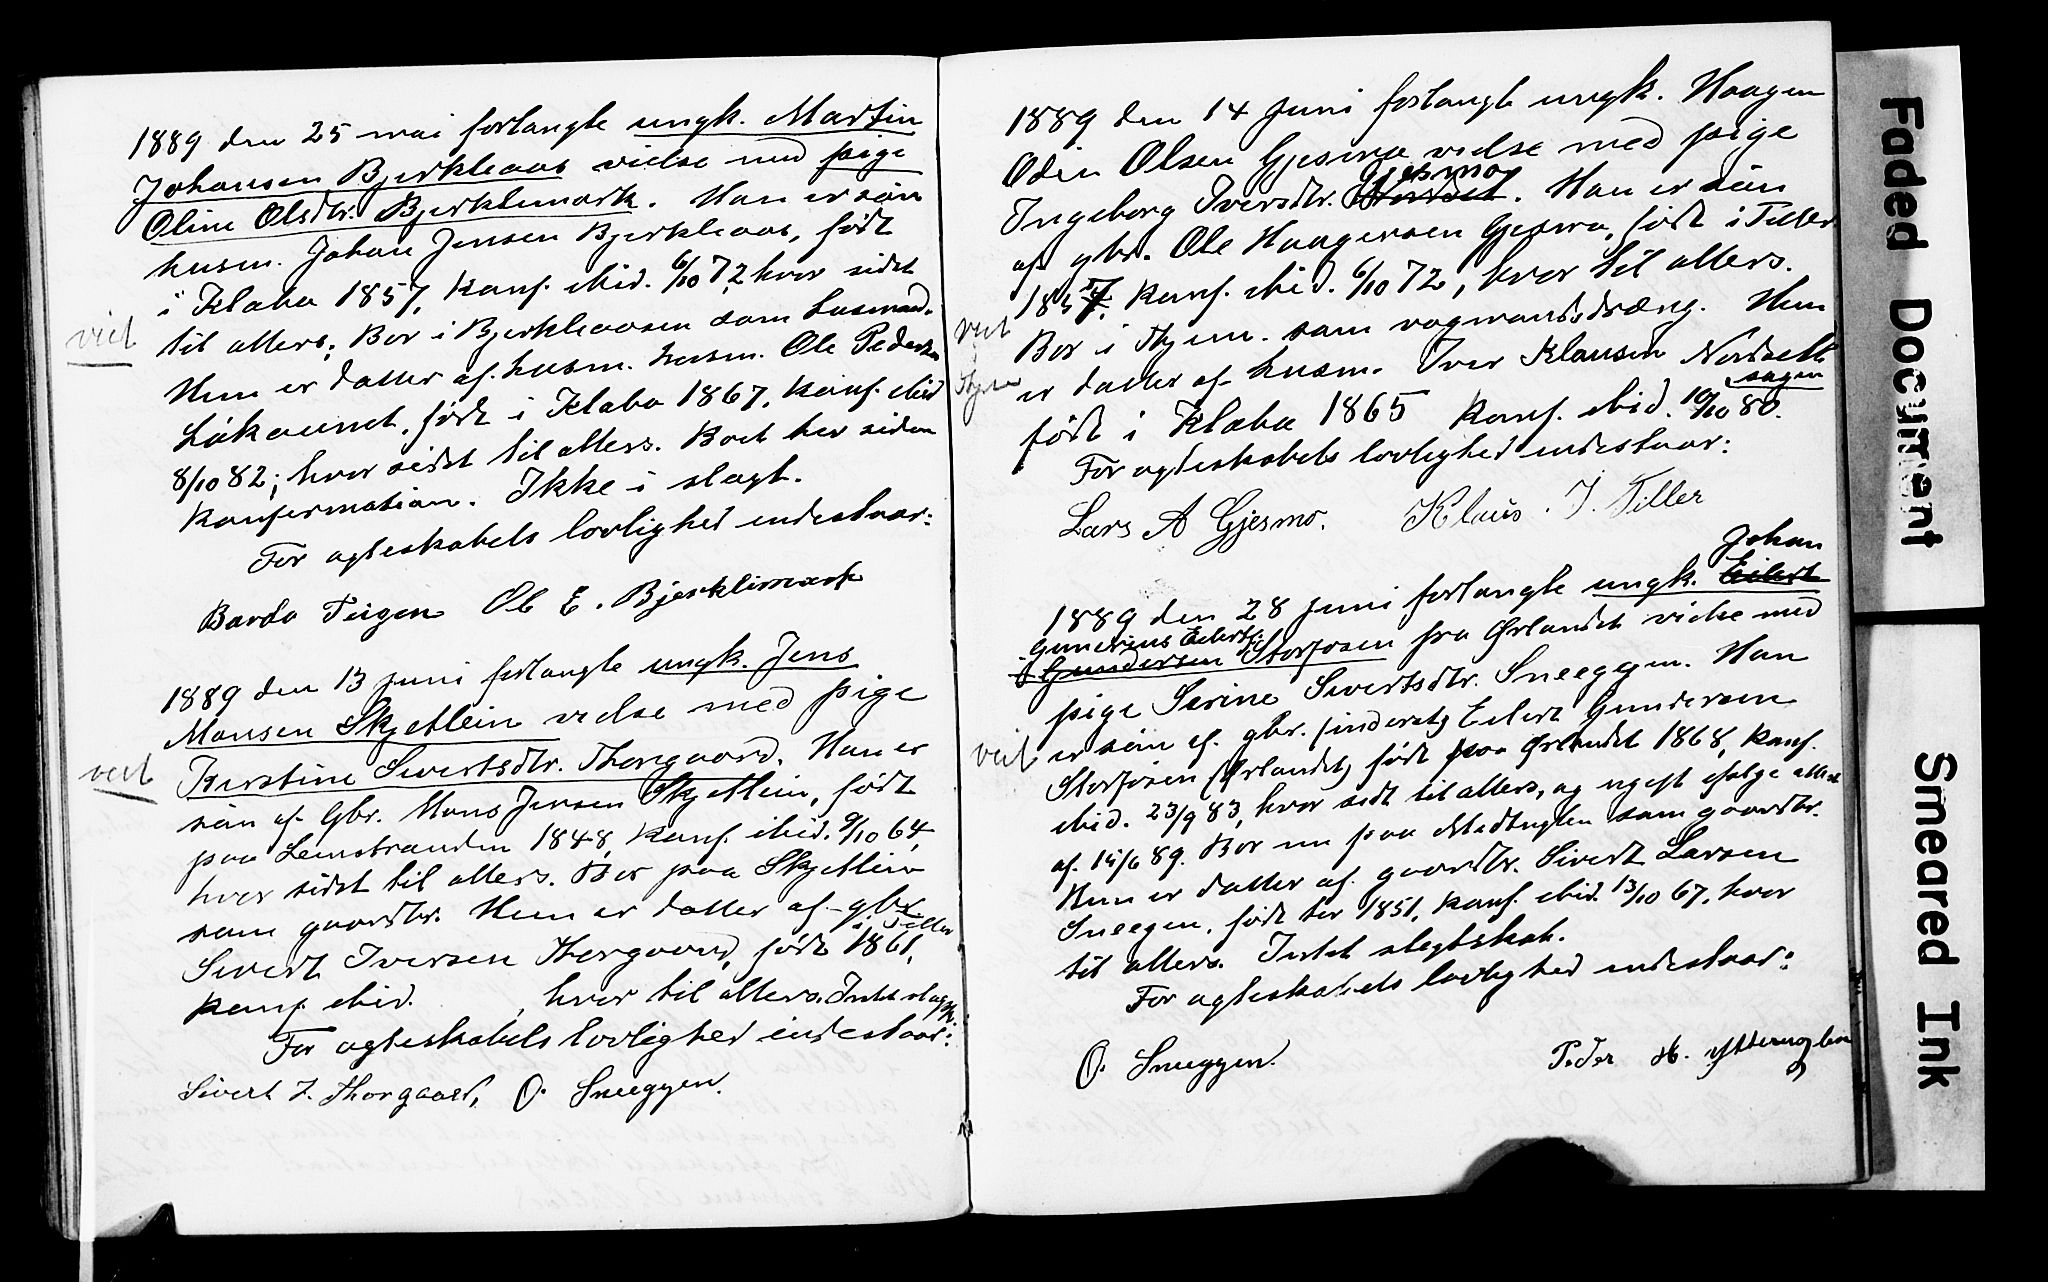 1889 den 25 mai forlangte ungk. Martin
Johansen Bjerkleaas vielse med pige
Oline Olsdtr. Bjerklimark. Han er søn
husm. Johan Jensen Bjerkleaas, født
i Klæbu 1857, konf. ibid. 6/10 72, hvor sidst
til alters; Bor i Bjerkleaasen som husmand.
viet
Hun er datter af husm. husm. Ole Pedersen
født i Klæbu 1867, konf. ibid
8/10 82; hvor sidst til alters. Boet her siden
konfirmation. Ikke i slægt.
For ægteskabets lovlighed indestaar:
Bardo Teigen Ole E. Bjerklimark
1889 den 13 juni forlangte ungk. Jens
Monsen Skjetlein vielse med pige
Kirstine Sivertsdtr. Thorgaard. Han er
viet
søn af Gbr. Mons Jensen Skjetlein, født
paa Leinstranden 1848, konf. ibid. 9/10 64,
hvor sidst til alters. Bor paa Skjetlein
som gaardbr. Hun er datter af gbr.
Sivert Iversen Thorgaard, født i Tiller 1861,
konf. ibid. , hvor til alters. Intet slægsk.
For ægteskabets lovlighed indestaar:
Sivert I. Thorgaard, O. Sneeggen.
1889 den 14 juni forlangte ungk. Haagen
Odin Olsen Gjesmo vielse med pige
Ingeborg Iversdtr. Nordset Gjesmo. Han er søn
af gbr. Ole Haagensen Gjesmo, født i Tiller
1857, konf. ibid. 6/10 72, hvor til alters.
viet
Bor i Thjem. som vognmandsdræng. Hun
er datter af husm. Iver Klausen Nordseth
sagen
født i Klæbu 1865 konf. ibid. 10/10 80.
For ægteskabets lovlighed indestaar:
Lars A Gjesmo. Klaus. I. Tiller
Johan
1889 den 28 juni forlangte ungk. Eilert
Gunerius Eilerts
Gundersen Storfosen fra Ørlandet vielse med
pige Serine Sivertsdtr. Sneeggen. Han
er søn af gbr. (inderst) Eilert Gundersen
viet
Storfosen (Ørlandet) født paa Ørlandet 1868, konf.
ibid. 23/9 83, hvor sidst til alters, og ugift ifølge attest
af 14/6 89. Bor nu paa som gaardbr.
Hun er datter af gaardbr. Sivert Larsen
Sneegen, født her 1851, konf. ibid. 13/10 67, hvor
til alters. Intet slegtskab.
For ægteskabets lovlighed indestaar:
O. Sneeggen. Peder H.
Faded Document
Smeared Ink